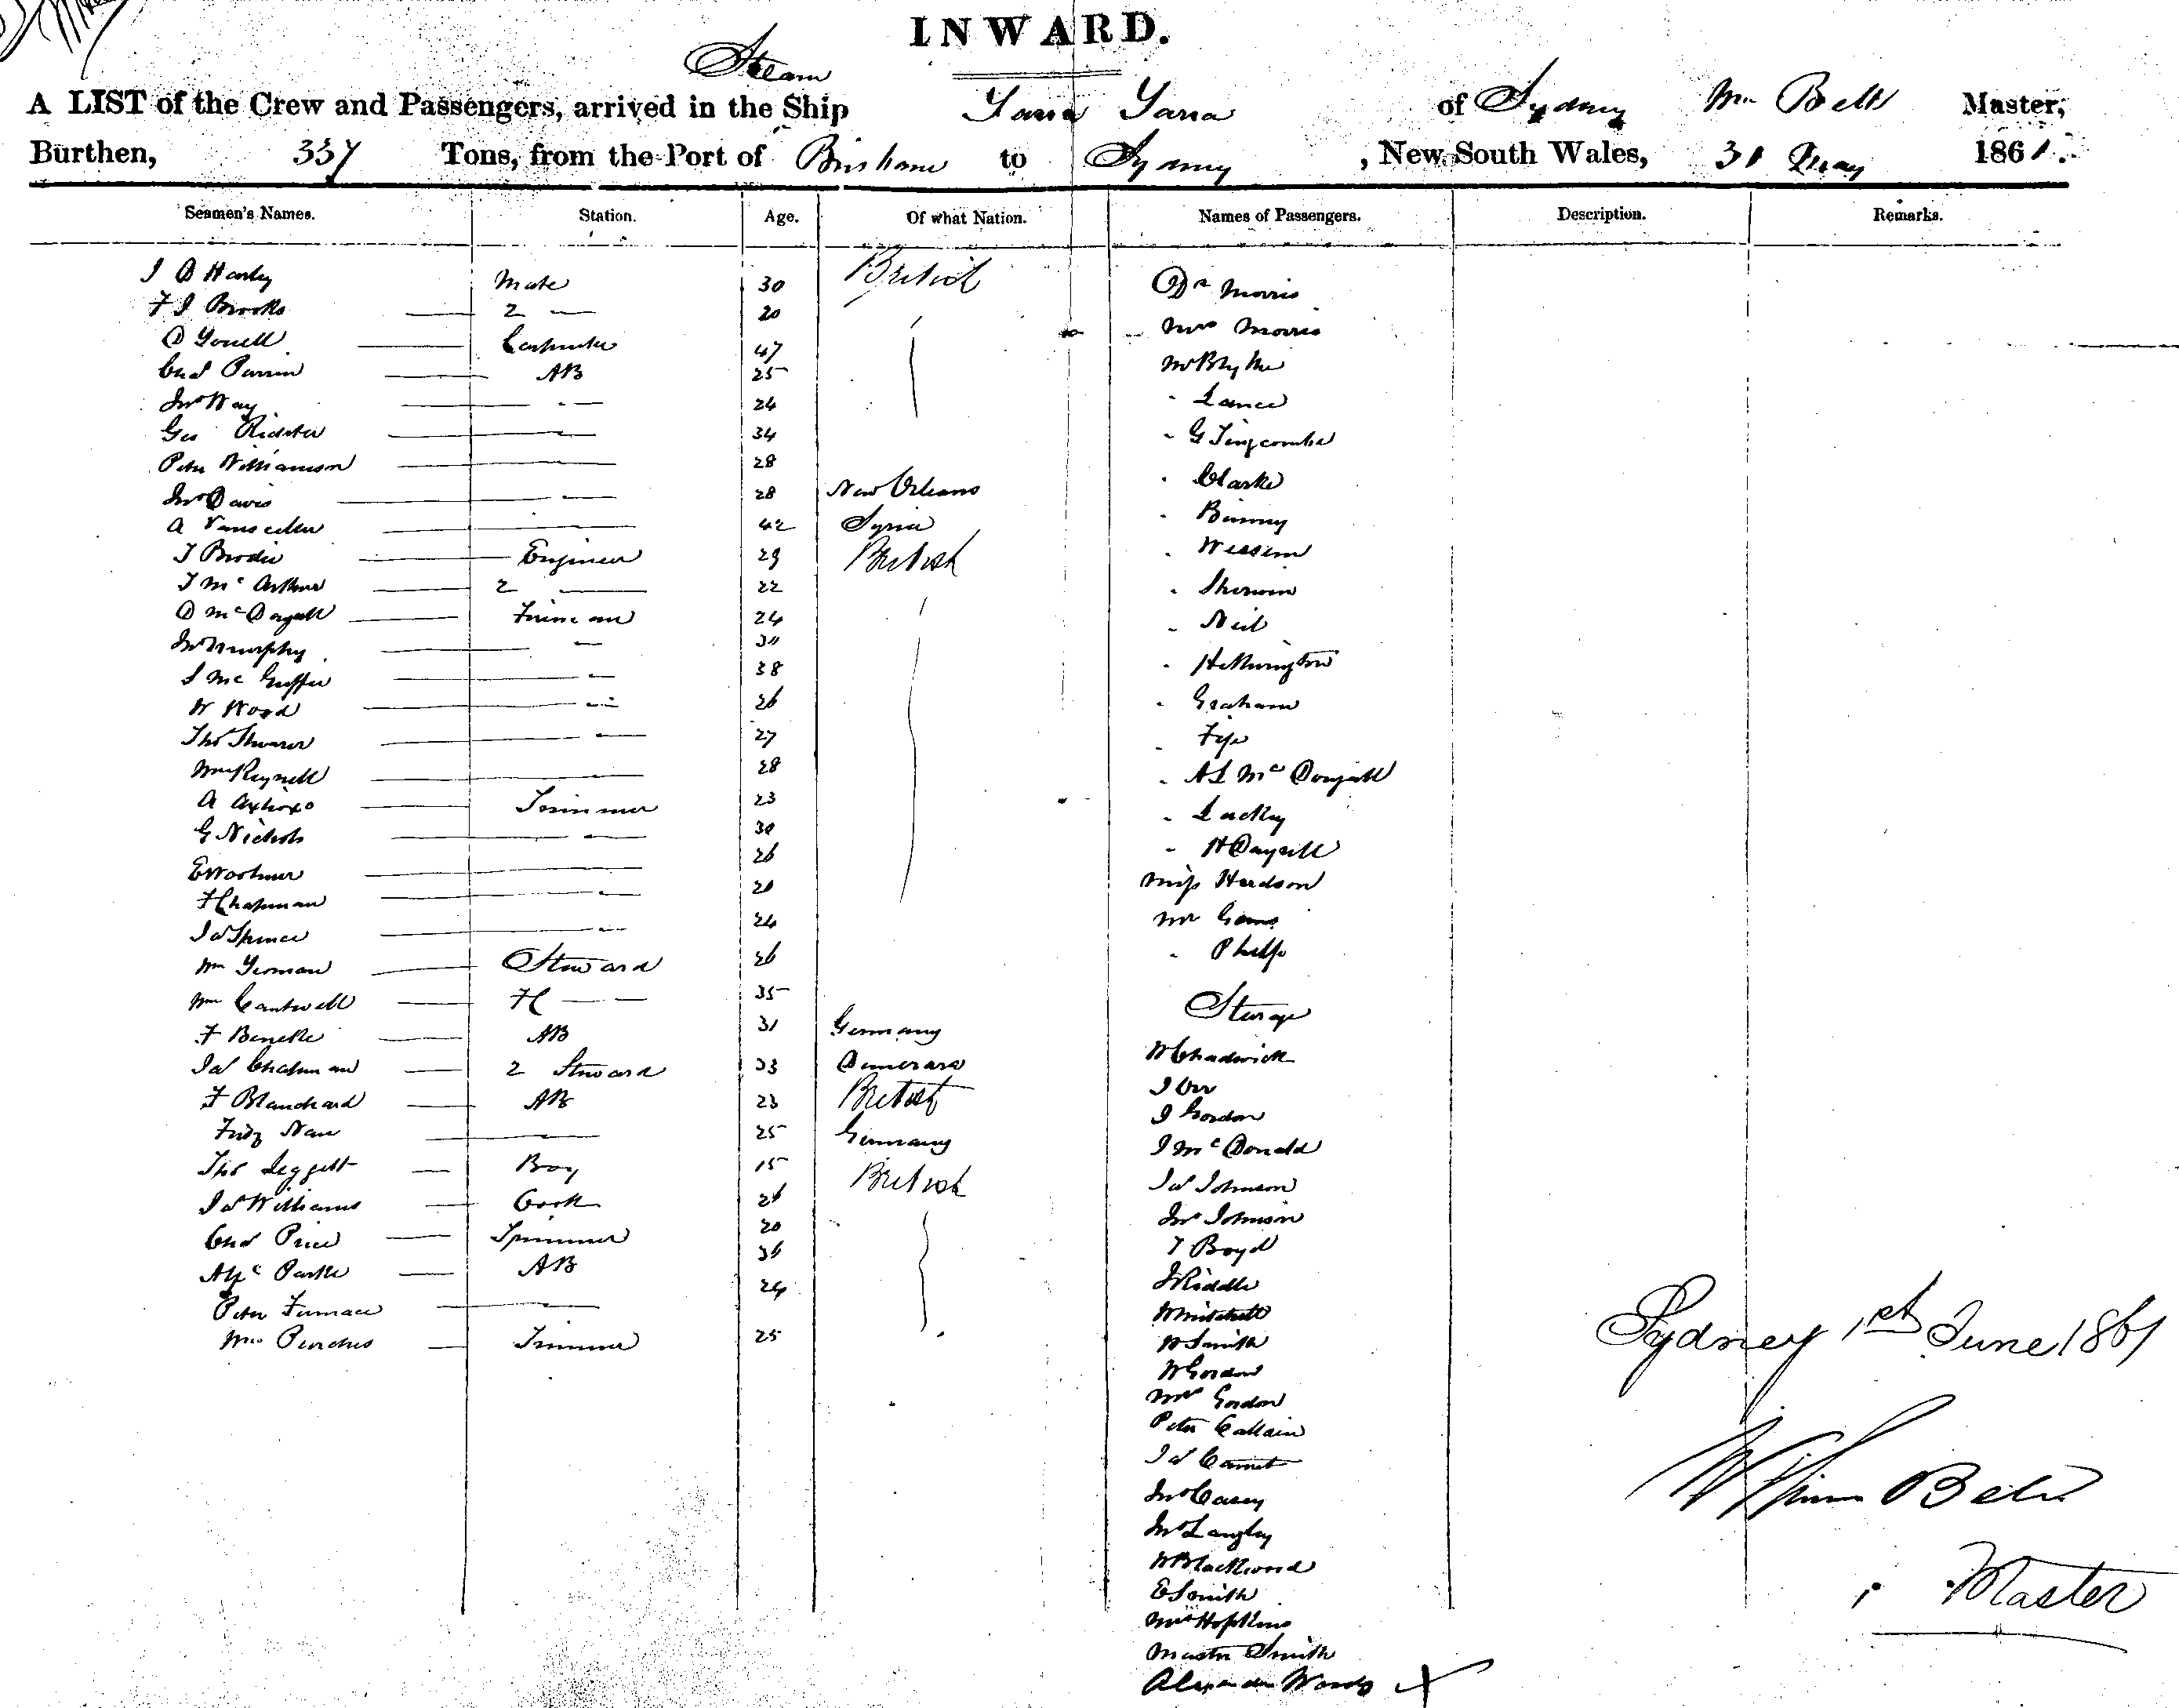 INWARD.
Steam
A LIST of the Crew and Passengers, arrived in the Ship Yarra Yarra of Sydney Wm Bell Master,
Burthen, 337 Tons, from the Port of Brisbane to Sydney, New South Wales, 31 May 1861.
Seamen's Names. Station. Age. Of what Nation. Names of Passengers. Description. Remarks.
Mate 30 British
F J Brooks 2 — 20
Carpenter 47
Chas Perrin AB 25
Jno Way — 24
Geo — 34
Peter Williamson — 28
Jno Davis — 28 New Orleans
A — 42 Syria
J Brodie Engineer 29 British
J McArthur 2 — 22
D McDogall Fireman 24
Jno Murphy —
J Mc — 38
W Wood — 26
Thos — 27
Wm Reynell — 28
A Trimmer 23
G Nichols — 30
— 26
F Chapman — 20
Jas Spence — 24
Wm Yeoman Steward 26
Wm Cantwell 35
F Beneke AB 31 Germany
Jas Chapman 2 Steward 33 Demerara
F Blanchard AB 23 British
Nau — 25 Germany
Thos Leggett Boy 15 British
Jas Williams Cook 26
Chas Price 20
Parke AB 36
Peter Furnace — 24
Wm Purches Trimmer 25
Dr Morris
Mrs Morris
Mr Blythe
" Lance
" G Tingcombe
" Clarke
" Binny
"
" Sherwin
" Neil
" Hetherington
" Graham
" Fife
" A L McDougall
" Lackey
" H Dayrell
Miss Hardson
Mr
" Phelps
Sterage
W Chadwick
J Orr
J Gordon
J McDonald
Jas Johnson
Jno Johnson
T Boyd
J Riddle
W Mitchell
W Smith
W Gordon
Mrs Gordon
Peter Callain
Jas
Jno Casey
Jno Langley
W Blackwood
E Smith
Mrs Hopkins
Master Smith
Alexander Woods X
Sydney 1st June 1861
William Bell
Master